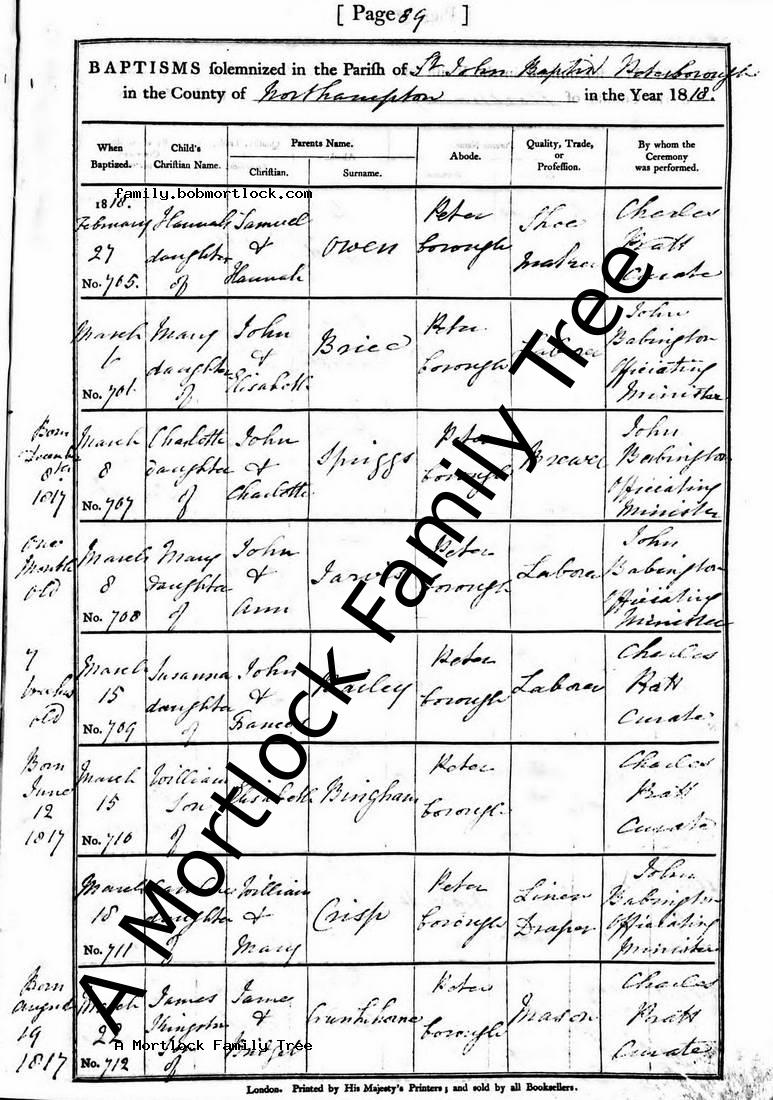 [ Page 89 ]
BAPTISMS solemnized in the Parish of St. John Baptist Peterborough
in the County of Northampton in the Year 1818.
When Baptized.
Child's Christian Name.
Parents Name.
Christian.
Surname.
Abode.
Quality, Trade, or Profession.
By whom the Ceremony was performed.
family.bobmortlock.com
1818.
February Hannah Samuel Peter Shoe Charles
27 daughter & Owen borough Maker Pratt
No. 705. of Hannah Curate
March Mary John Peter John
6 daughter & borough Labora Babington
of Elisabeth Officiating
No. 706. Minister
Born March Charlotte John Peter John
December 8 daughter & Spriggs borough Babington
8th. of Charlotte Officiating
1817 No. 707 Minister
One March Mary John Peter John
Month 8 daughter & Jarvis borough Labora Babington
old of Ann Officiating
No. 708 Minister
7 March Susanna John Peter Charles
weeks 15 daughter & Bailey borough Labora Pratt
old No. 709 of Frances Curate
Born March William Peter Charles
June 15 Son Elisabeth Bingham borough Pratt
12 of Curate
1817 No. 710
March William Peter Linen John
18 daughter & Crisp borough Draper Babington
of Mary Officiating
No. 711 Minister
Born March James James Peter Charles
August & borough Mason Pratt
19 Son Curate
1817 No. 712 of
A Mortlock Family Tree
A Mortlock Family Tree
London. Printed by His Majesty's Printers; and sold by all Booksellers.